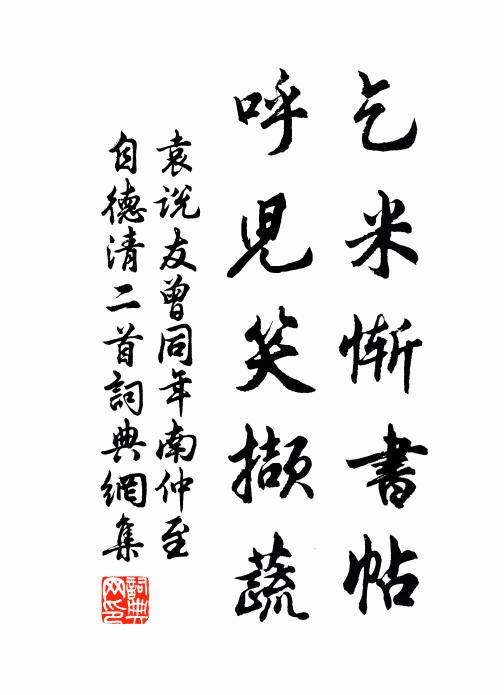 乞米惭書帖
呼児笑擷蔬
袁説友曾同年南仲至
自德清二首詞典網集
詞典網印